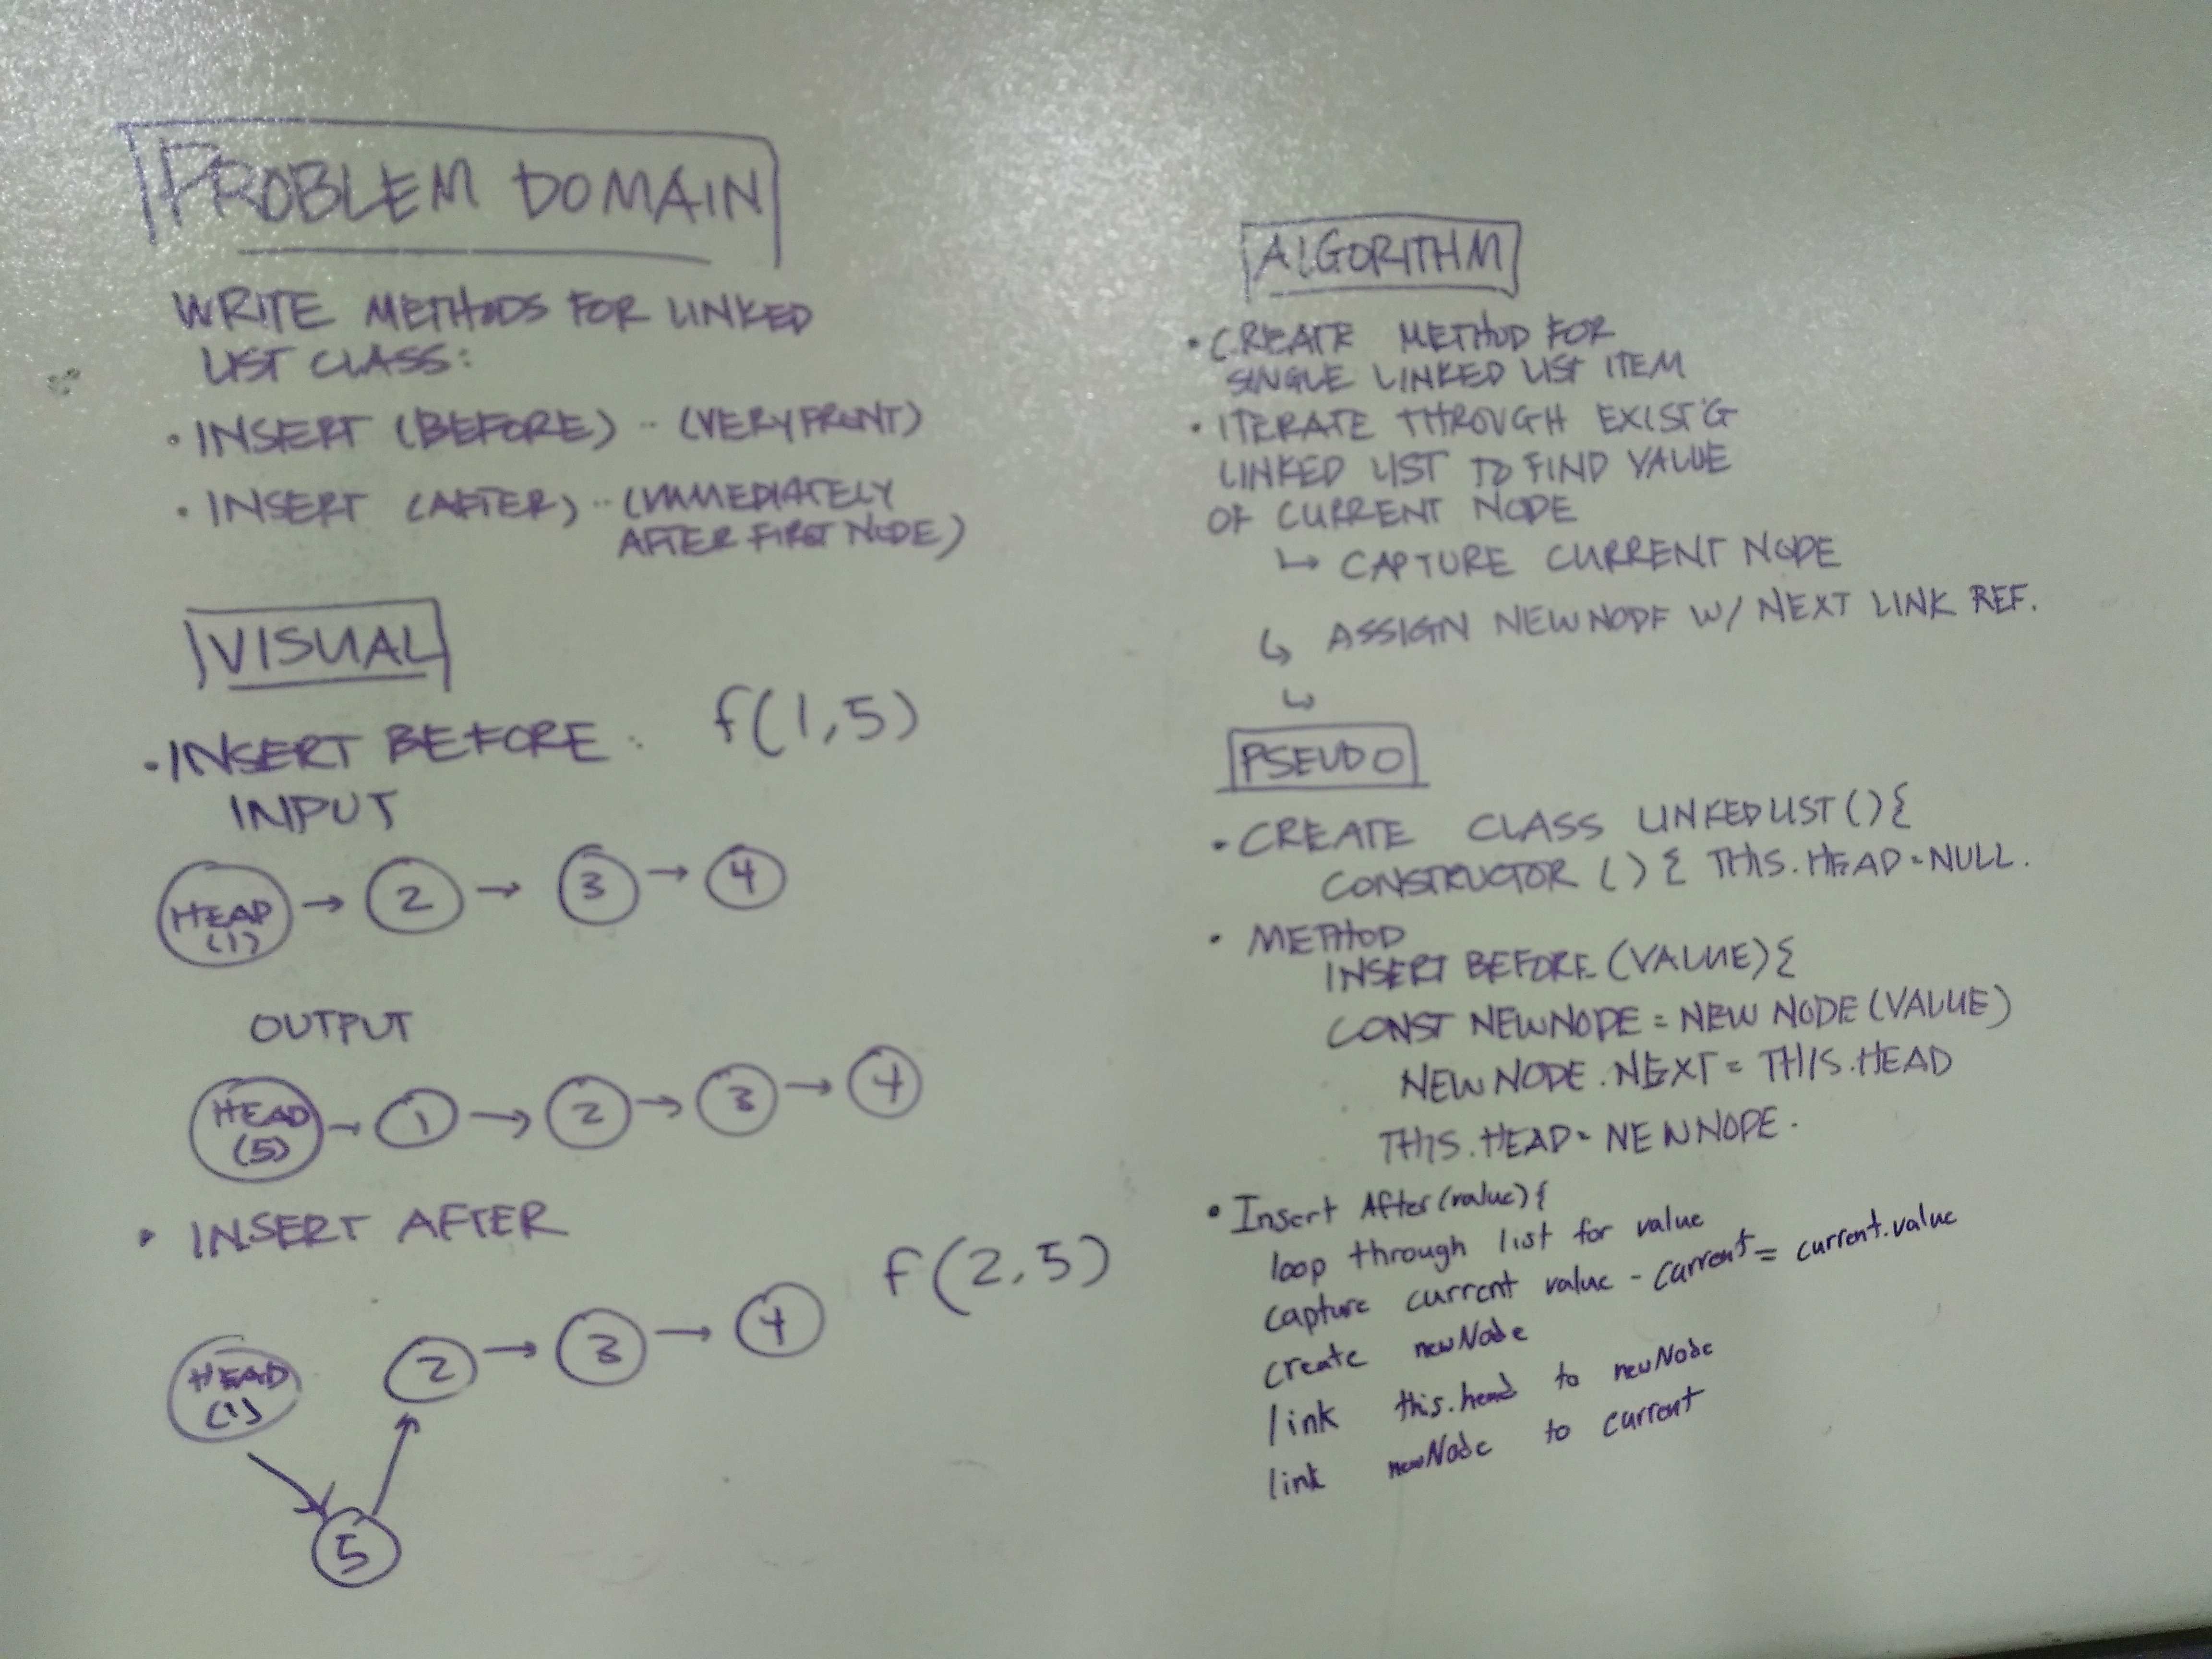 PROBLEM DOMAIN
WRITE METHODS FOR LINKED
LIST CLASS:
• INSERT (BEFORE) .. (VERY FRONT)
• INSERT (AFTER) .. (IMMEDIATELY
AFTER FIRST NODE)
VISUAL
• INSERT BEFORE : f(1,5)
INPUT
HEAD (1) → 2 → 3 → 4
OUTPUT
HEAD (5) → 1 → 2 → 3 → 4
• INSERT AFTER f(2,5)
HEAD (1) 2 → 3 → 4
5
ALGORITHM
• CREATE METHOD FOR
SINGLE LINKED LIST ITEM
• ITERATE THROUGH EXIST'G
LINKED LIST TO FIND VALUE
OF CURRENT NODE
↳ CAPTURE CURRENT NODE
↳ ASSIGN NEWNODE W/ NEXT LINK REF.
↳
PSEUDO
• CREATE CLASS LINKEDLIST () {
CONSTRUCTOR () { THIS.HEAD = NULL.
• METHOD
INSERT BEFORE (VALUE) {
CONST NEWNODE = NEW NODE (VALUE)
NEWNODE.NEXT = THIS.HEAD
THIS.HEAD = NEWNODE.
• Insert After (value) {
loop through list for value
capture current value - current = current.value
create newNode
link this.head to newNode
link newNode to current